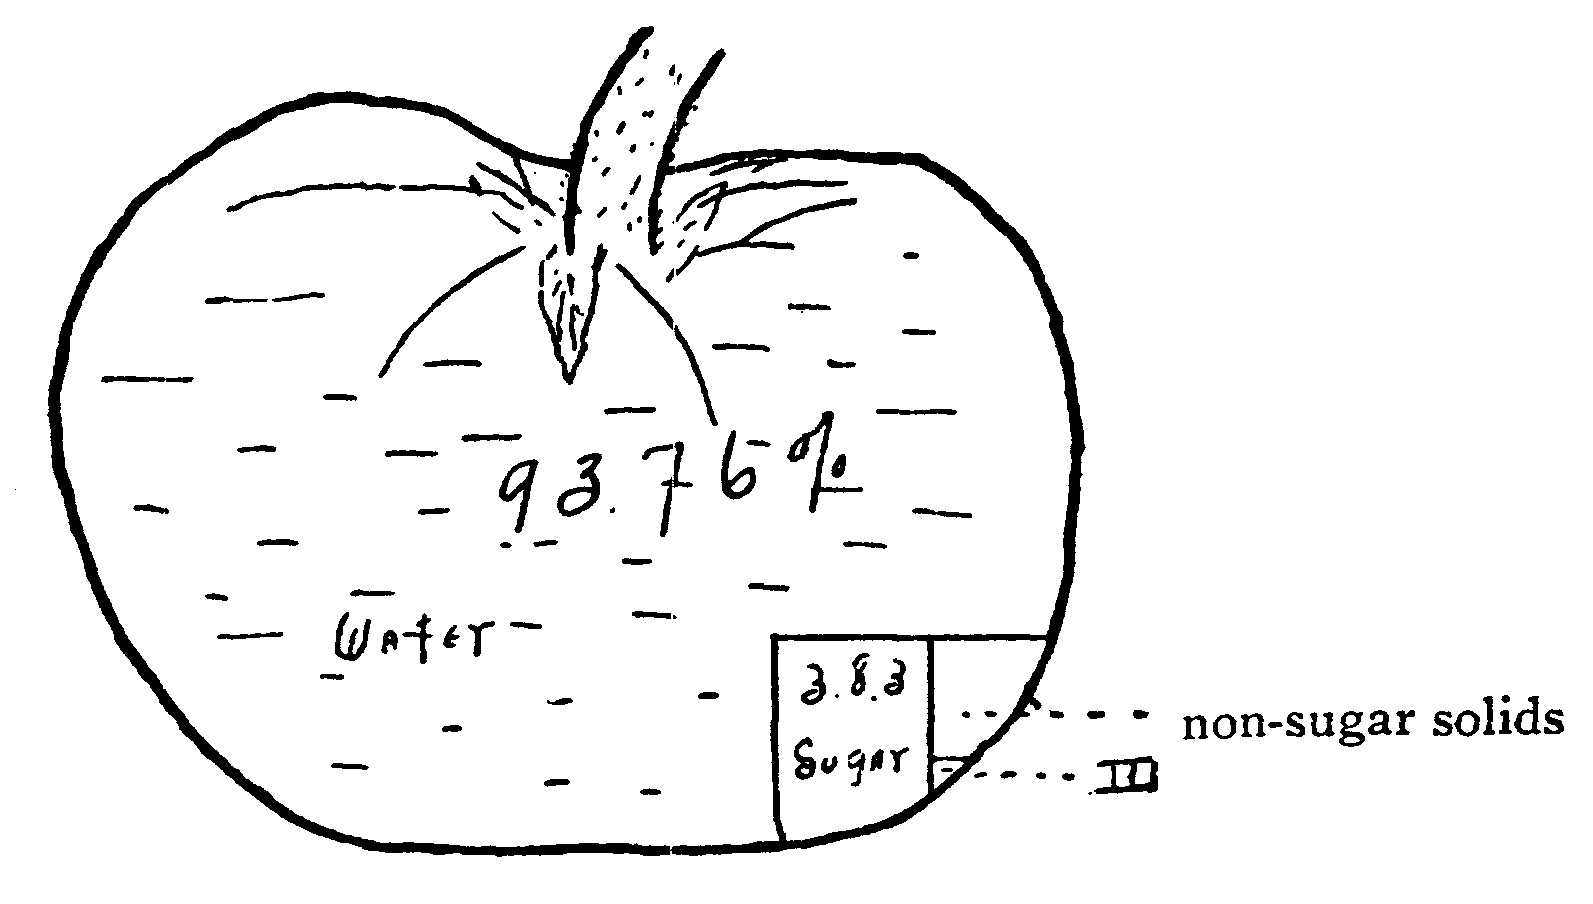 93.75%
Water
3.83
Sugar
non-sugar solids